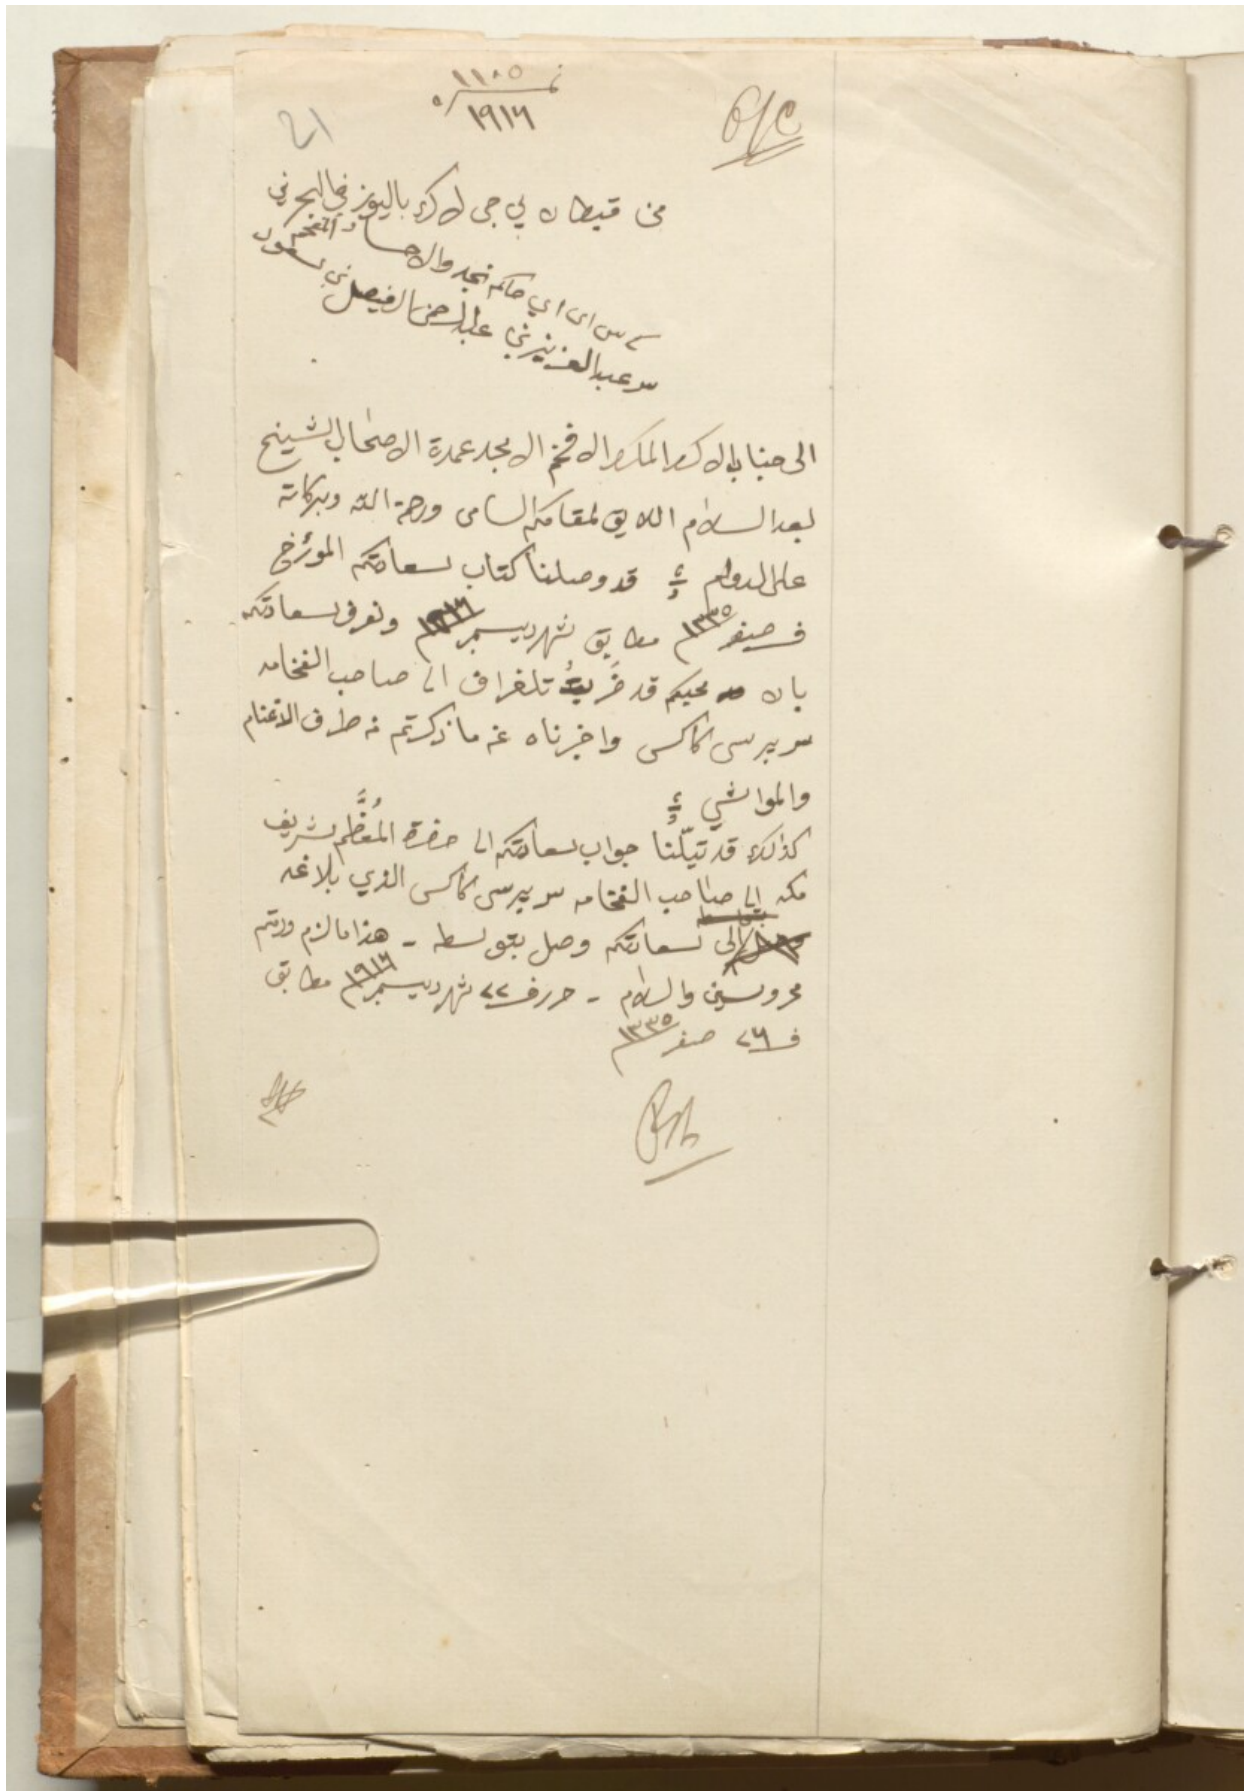 نمرة ١١٨٥
١٩١٦
O/C
21
من قبطان بي جي لاك باليوز في البحرين
كي سي اي اي حاكم نجد والاحساء المفخم
سر عبدالعزيز بن عبدالرحمن الفيصل بن سعود
الى جناب الاكرم المكرم الافخم الامجد عمدة الاصحاب الشيخ
بعد السلام اللايق لمقامكم السامى ورحمة الله وبركاته
على الدوام قد وصلنا كتاب سعادتكم المؤرخ
ف صفر ١٣٣٥ مطابق شهر ديسمبر ١٩١٦ ونعرف سعادتكم
بان محبكم قد ضربت تلغراف الى صاحب الفخامه
سر بيرسى كاكس واخبرناه عن ما ذكرتم من طرف الاغنام
والمواشي
كذلك قد جواب سعادتكم الى حضرة المُعظَّم شريف
مكه الى صاحب الفخامه سر بيرسى كاكس الذي بلاغه
الى سعادتكم وصل بتوسطه - هذا ما لزم ودمتم
محروسين والسلام - حرر ف ٢٢ شهر ديسمبر ١٩١٦ مطابق
ف ٢٦ صفر ١٣٣٥